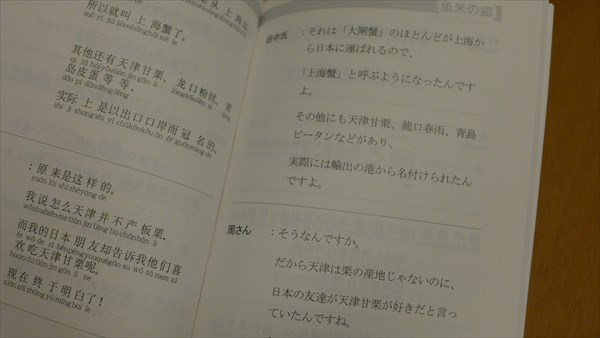 从上海运
所以就叫上海蟹了。
suǒ yǐ jiù jiào shàng hǎi xiè le
其他还有天津甘栗、龙口粉丝、青
岛皮蛋等等,
dǎo pí dàn děng děng
实际上是以出口口岸而冠名的。
shí jì shang shì yǐ chū kǒu kǒu àn ér guān míng de
:原来是这样的。
yuán lái shì zhè yàng de
我说怎么天津并不产板栗,
wǒ shuō zěn me tiān jīn bìng bù chǎn bǎn lì
而我的日本朋友却告诉我他们喜
ér wǒ de rì běn péng yǒu què gào su wǒ tā men xǐ
欢吃天津甘栗呢。
huan chī tiān jīn gān lì ne
现在终于明白了!
xiàn zài zhōng yú míng bai le
【魚米の郷】
田中氏 :それは「大閘蟹」のほとんどが上海か
ら日本に運ばれるので、
「上海蟹」と呼ぶようになったんです
よ。
その他にも天津甘栗、龍口春雨、青島
ピータンなどがあり、
実際には輸出の港から名付けられたん
ですよ。
周さん :そうなんですか。
だから天津は栗の産地じゃないのに、
日本の友達が天津甘栗が好きだと言っ
ていたんですね。